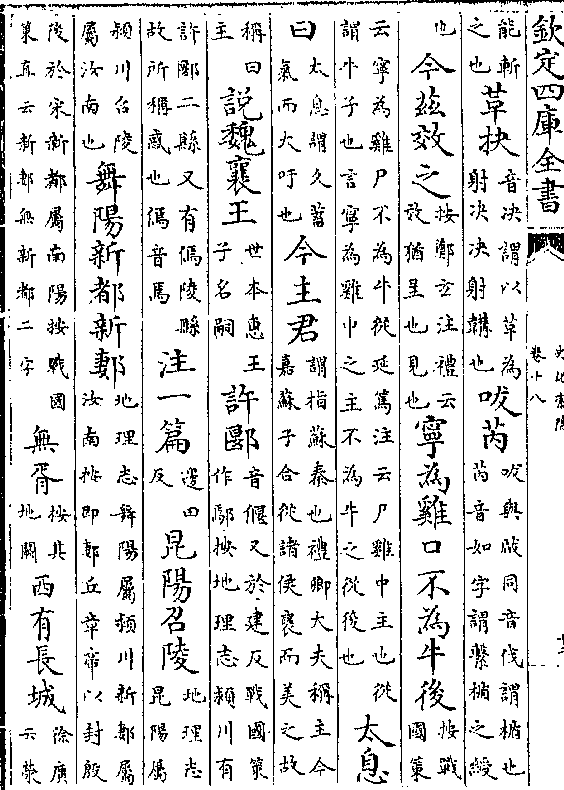 欽定四庫全書
史記索隱
卷十八
能斬
之也
革抉
音决謂以草為
射决决射韝也
㕹芮
㕹與𢧕同音伐謂楯也
芮音如字謂繫楯之綬
也
今茲效之
按鄭玄注禮云
效猶呈也見也
寧為雞口不為牛後
按戰
國策
云寧為雞尸不為牛從延篤注云尸雞中主也從
謂牛子也言寧為雞中之主不為牛之從後也
太息
曰
太息謂久蓄
氣而大吁也
今主君
謂指蘇秦也禮卿大夫稱主今
嘉蘇子合從諸侯褒而美之故
稱曰
主
說魏襄王
世本惠王
子名嗣
許鄢
音偃又於建反戰國策
作鄢按地理志潁川有
許鄢二縣又有傿陵縣
故所稱惑也傿音馬
注一篇
邊田
反
昆陽召陵
地理志
昆陽屬
潁川召陵
屬汝南也
舞陽新都新郪
地理志舞陽屬潁川新郪屬
汝南按即郪丘章帝以封殷
後於宋新都屬南陽按戰國
策直云新郪無新都二字
無胥
按其
地闕
西有長城
徐廣
云滎